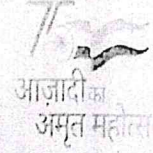 75
आज़ादी का
अमृत महोत्स